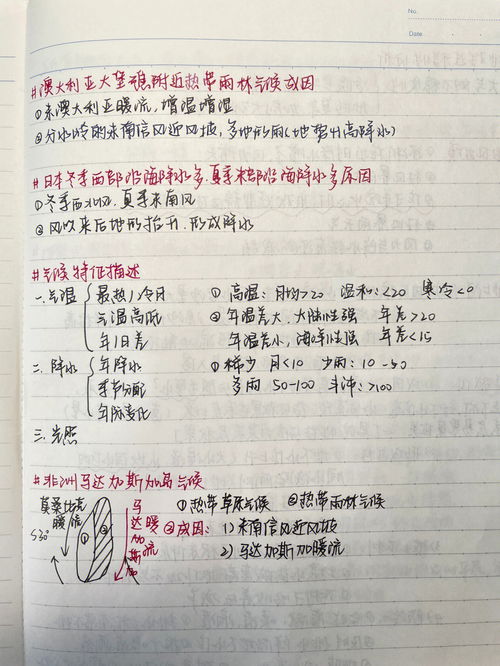 No.
Date
#澳大利亚大堡礁附近热带雨林气候成因
①东澳大利亚暖流,增温增湿
②分水岭的东南信风迎风坡,多地形雨(地势升高降水)
#日本冬季西部沿海降水多,夏季东部沿海降水多原因
①冬季西北风,夏季东南风
②风吹来后地形抬升,形成降水
#气候特征描述
一.气温 最热1冷月 ①高温:月均>20 温和:<20 寒冷<0
气温高低 ②年温差大,大陆性强 年差>20
年/日差 年温差小,海洋性强 年差<15
二.降水 年降水 ①稀少 月<10 少雨:10-50
季节分配 多雨 50-100 丰沛:>100
年际变化
三.光照
#非洲马达加斯加岛气候
莫桑比克暖流 ① ② 马达加斯加暖流 ①热带草原气候 ②热带雨林气候
S30° ③成因: 1)东南信风迎风坡
2)马达加斯加暖流